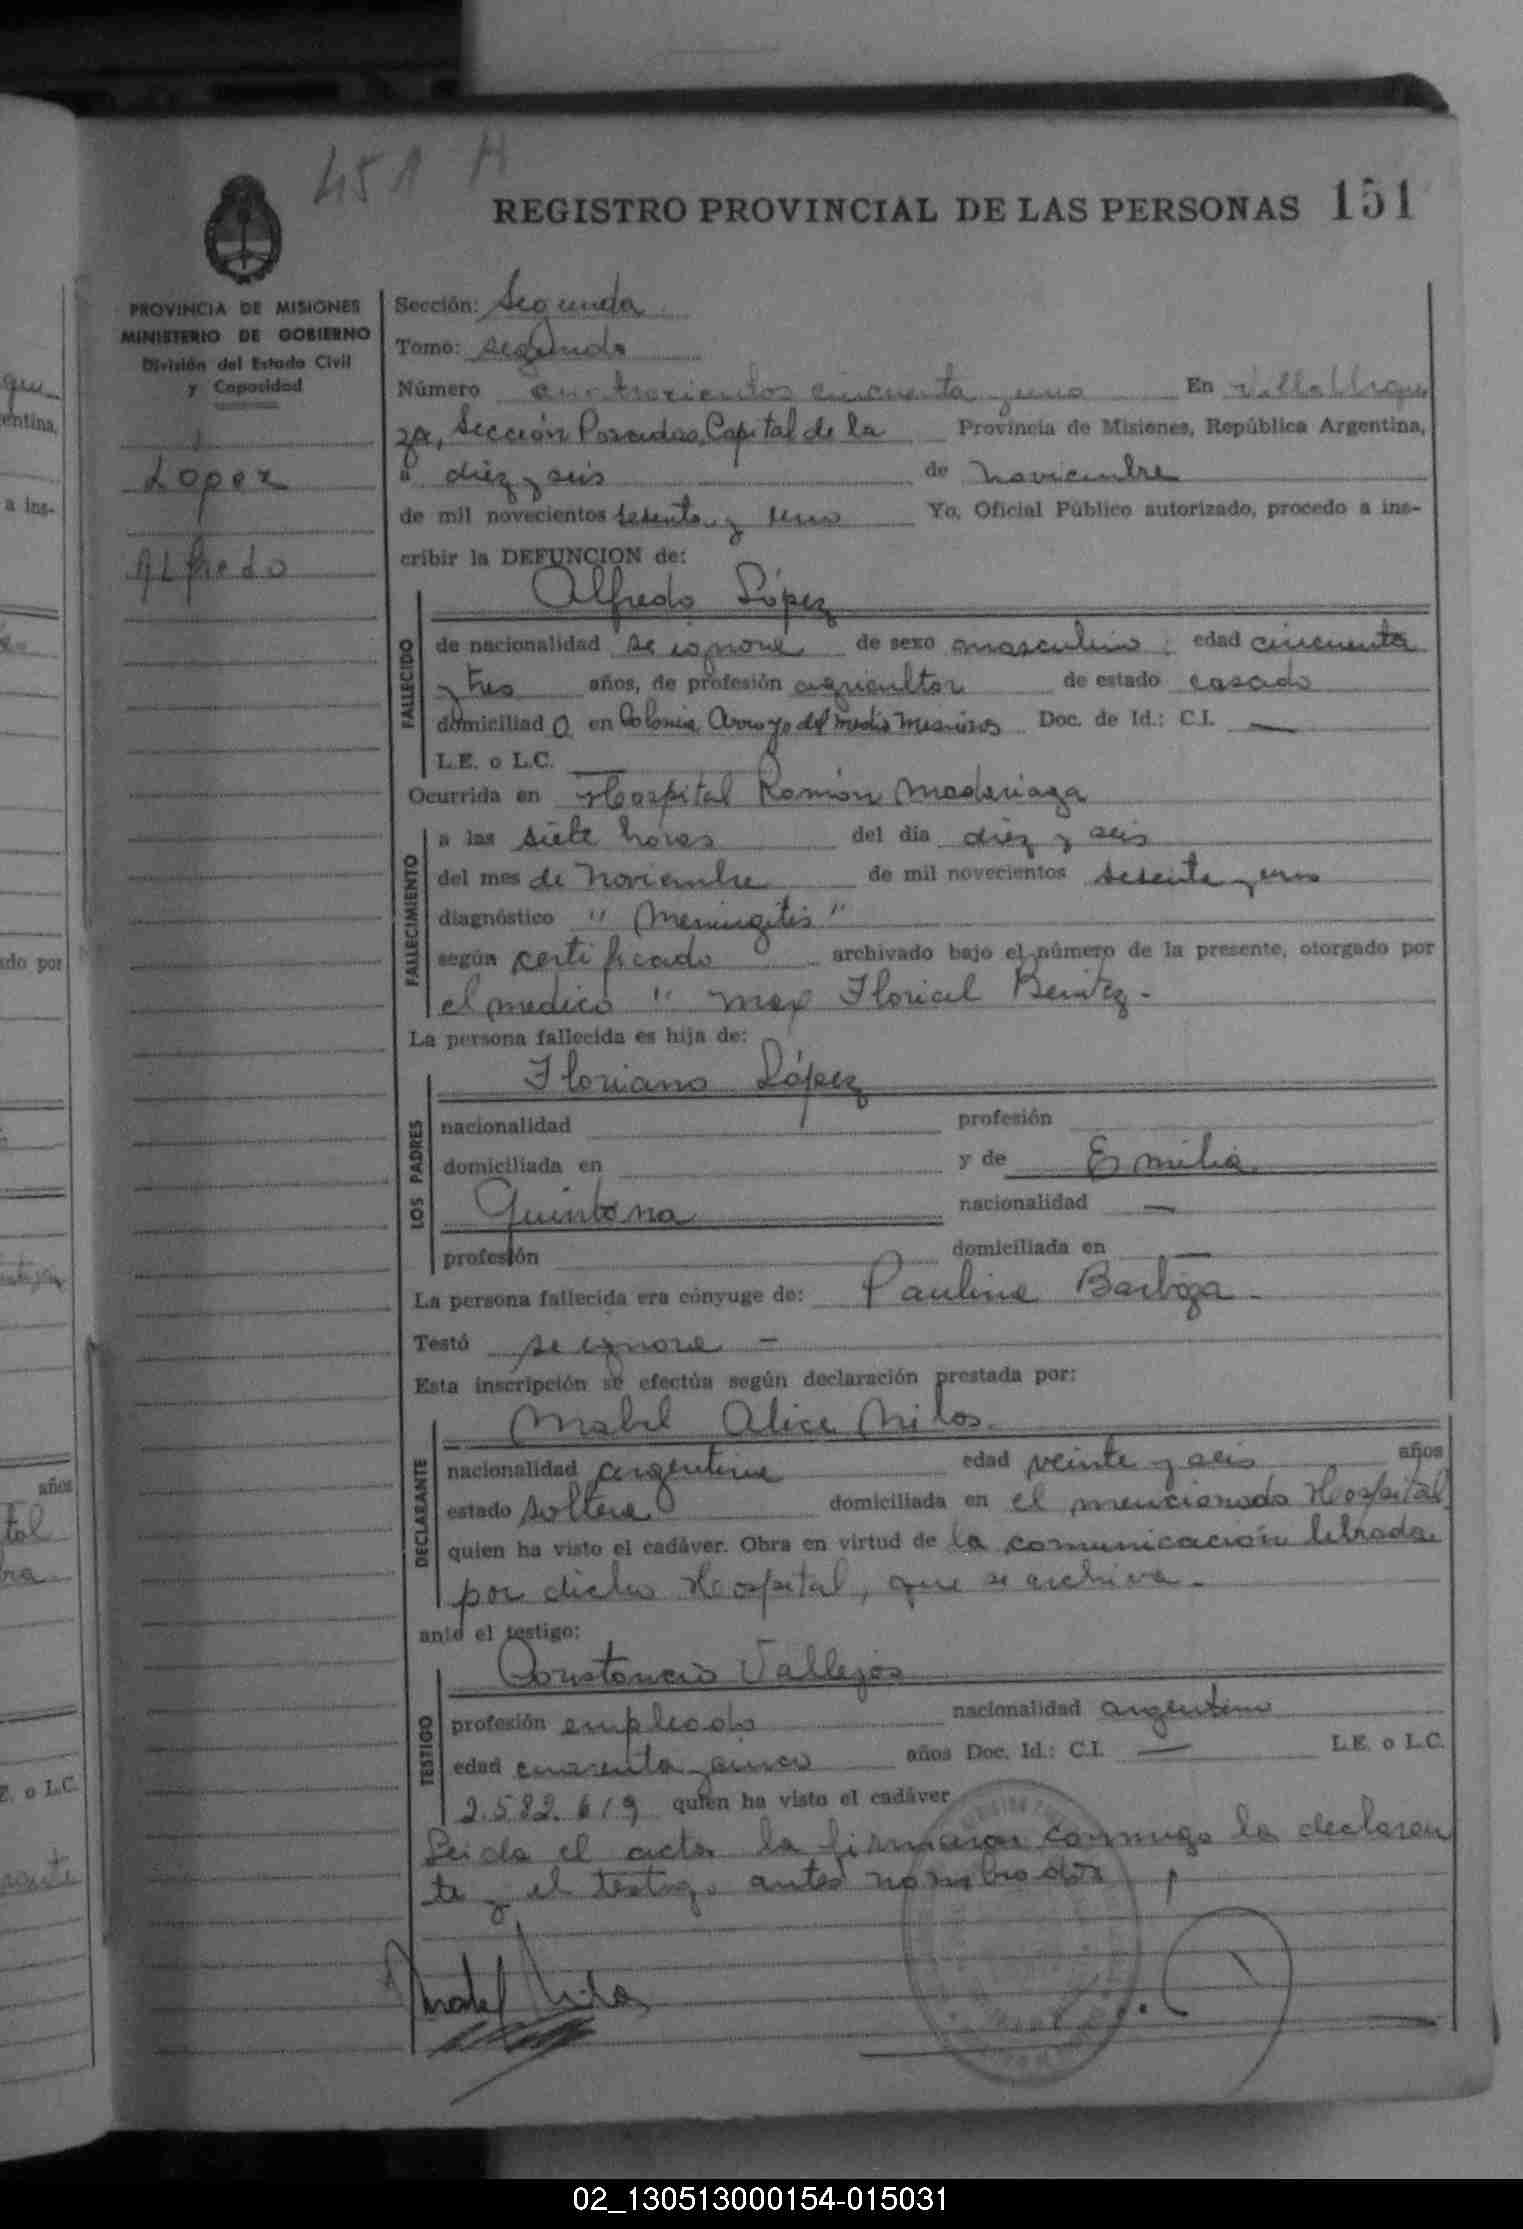 451 A
REGISTRO PROVINCIAL DE LAS PERSONAS 151
PROVINCIA DE MISIONES
MINISTERIO DE GOBIERNO
División del Estado Civil
y Capacidad
Lopez
Alfredo
Sección: Segunda
Tomo: segundo
Número cuatrocientos cincuenta y uno En Villa Urqui
za, Sección Posadas, Capital de la Provincia de Misiones, República Argentina,
a diez y seis de noviembre
de mil novecientos sesenta y uno Yo, Oficial Público autorizado, procedo a ins-
cribir la DEFUNCION de:
Alfredo López
FALLECIDO
de nacionalidad se ignora de sexo masculino; edad cincuenta
y tres años, de profesión agricultor de estado casado
domiciliad o en Colonia Arroyo del Medio Misiones Doc. de Id.: C.I. —
L.E. o L.C. —
Ocurrida en Hospital Ramón Madariaga
FALLECIMIENTO
a las siete horas del día diez y seis
del mes de noviembre de mil novecientos sesenta y uno
diagnóstico "Meningitis"
según certificado archivado bajo el número de la presente, otorgado por
el medico " Max Florial Benitez -
La persona fallecida es hija de:
LOS PADRES
Floriano López
nacionalidad profesión
domiciliada en y de Emilia
Quintana nacionalidad —
profesión domiciliada en —
La persona fallecida era cónyuge de: Paulina Barboza -
Testó se ignora -
Esta inscripción se efectúa según declaración prestada por:
DECLARANTE
Mabel Alice Milos.
nacionalidad argentina edad veinte y seis años
estado soltera domiciliada en el mencionado Hospital
quien ha visto el cadáver. Obra en virtud de la comunicación librada
por dicho Hospital, que se archiva.-
ante el testigo:
TESTIGO
Constancio Vallejos
profesión empleado nacionalidad argentino
edad cuarenta y cinco años Doc. Id.: C.I. — L.E. o L.C.
2.582.619 quien ha visto el cadáver
Leida el acta la firmaron conmigo la declaran
te y el testigo antes nombrados
Mabel Milos
años
ado por
a ins-
entina,
E. o L.C.
02_130513000154-015031